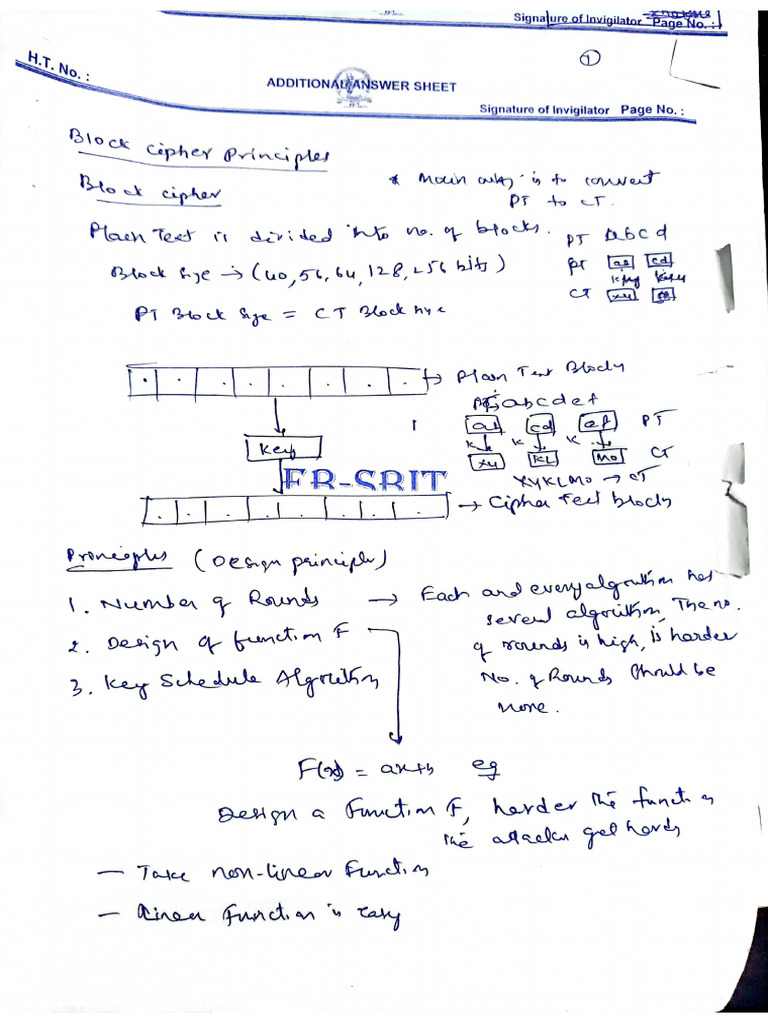 Signature of Invigilator Page No. :
H.T. No. :
1
ADDITIONAL ANSWER SHEET
Signature of Invigilator Page No. :
Block Cipher Principles
Block Cipher
* Main is to convert
PT to CT.
Plain Text is divided into no. of blocks.
PT abcd
Block Size → (40, 56, 64, 128, 256 bits)
PT ab cd
key key
CT xy
PT Block Size = CT Block Size
→ Plain Text Blocks
PT: abcdef
ab cd ef PT
Key
K K K
xy KL MO CT
ER-SRIT
XYKLMO → CT
→ Cipher Text Blocks
Principles (Design principles)
1. Number of Rounds → Each and every algorithm has
several algorithm, The no.
2. Design of function F
of rounds is high, is harder
3. Key Schedule Algorithm
No. of Rounds Should be
more.
F(x) = ax+b eg
Design a Function F, harder the function
the attacker get hards
— Take non-linear Function
— Linear Function is easy